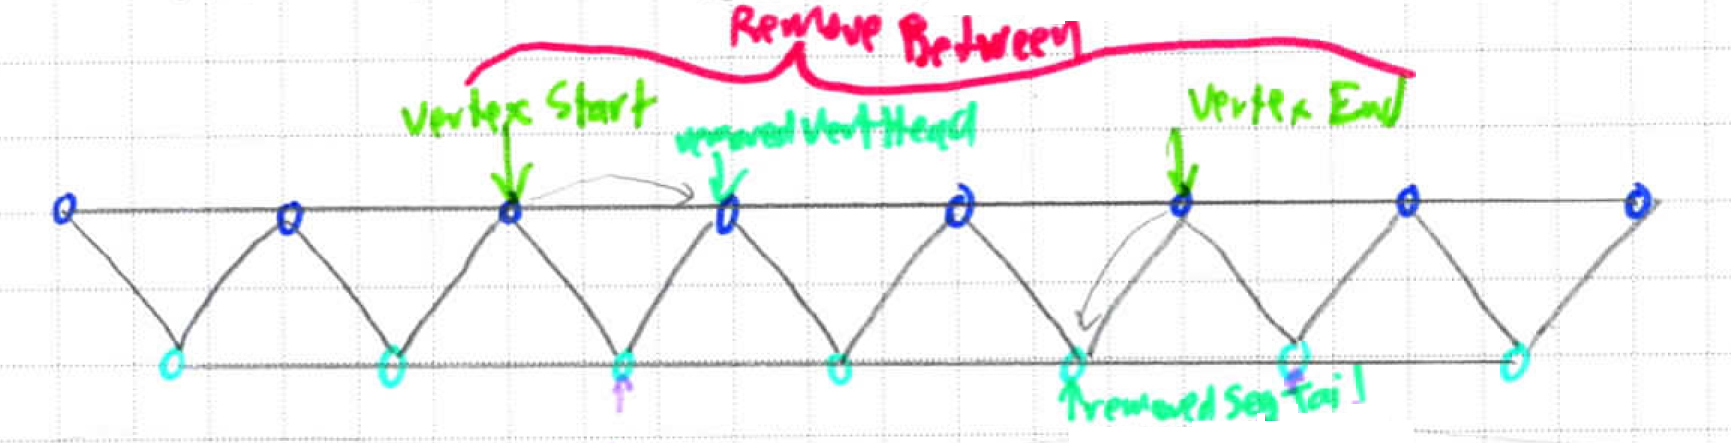 Remove Between
Vertex Start
removedVertHead
Vertex End
removed Seg Tail